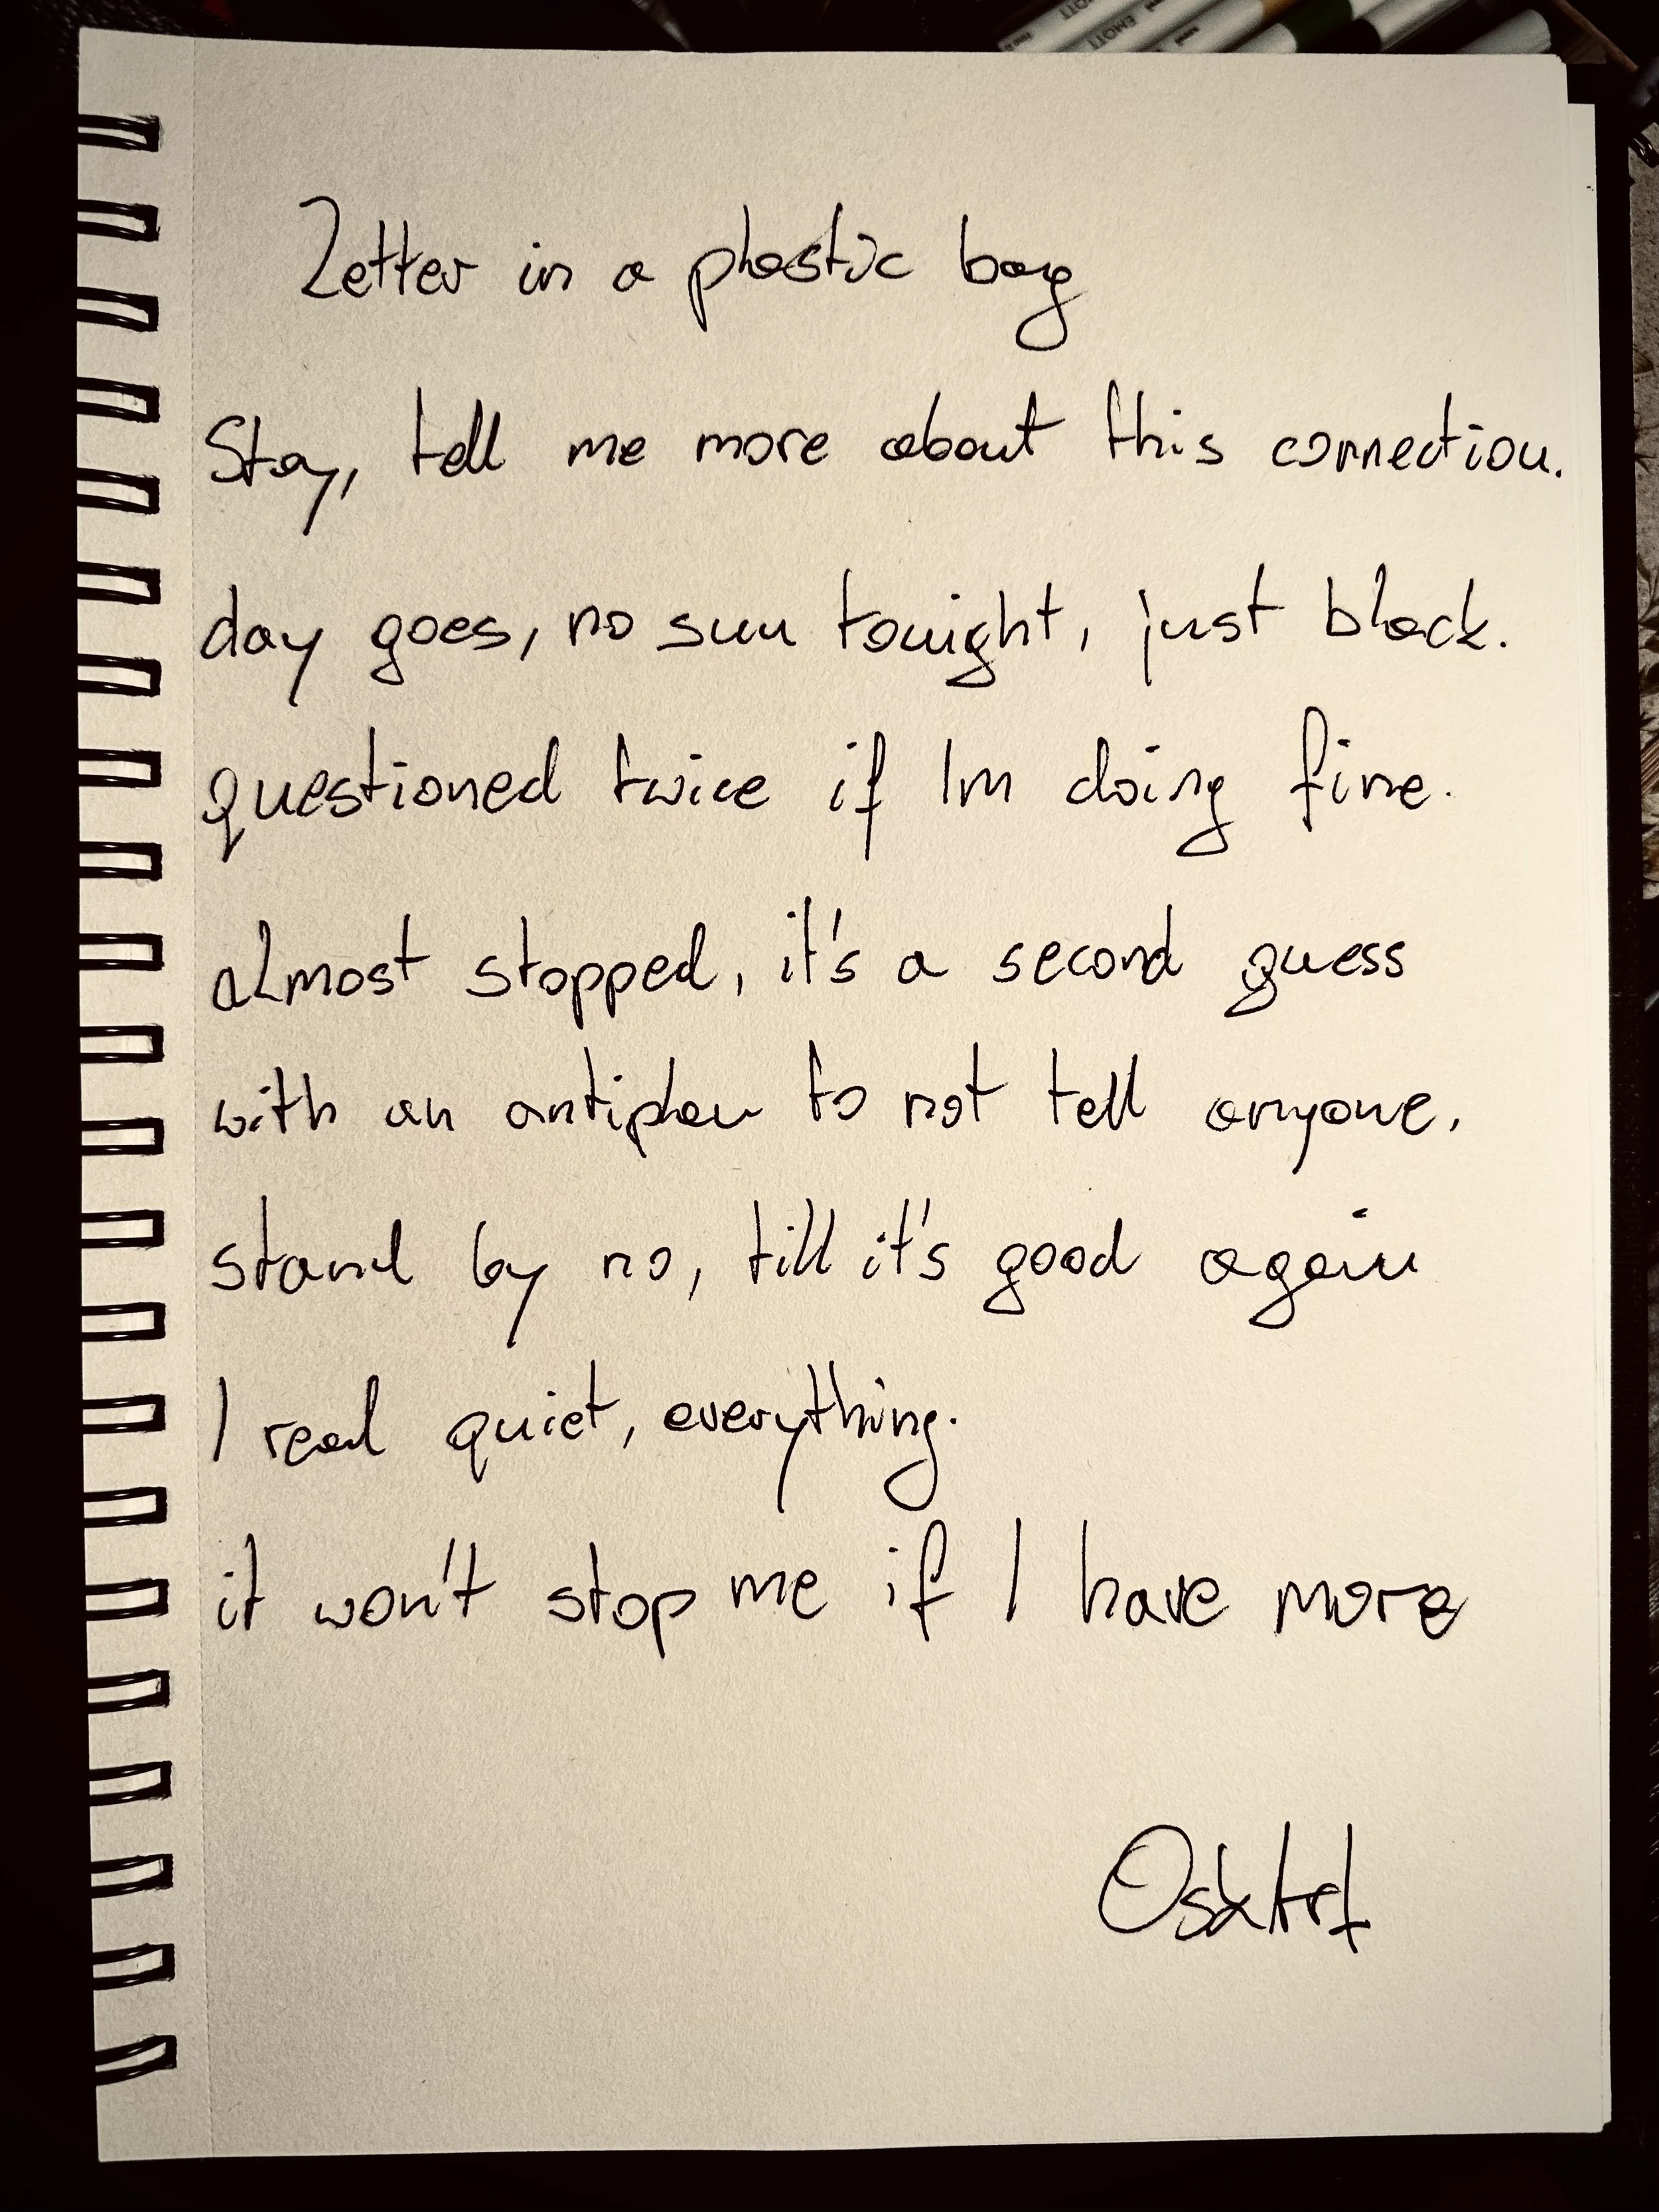 Letter in a plastic bag
Stay, tell me more about this connection.
day goes, no sun tonight, just black.
questioned twice if Im doing fine.
almost stopped, it's a second guess
with an antiplan to not tell anyone.
stand by no, till it's good again
I read quiet, everything.
it won't stop me if I have more